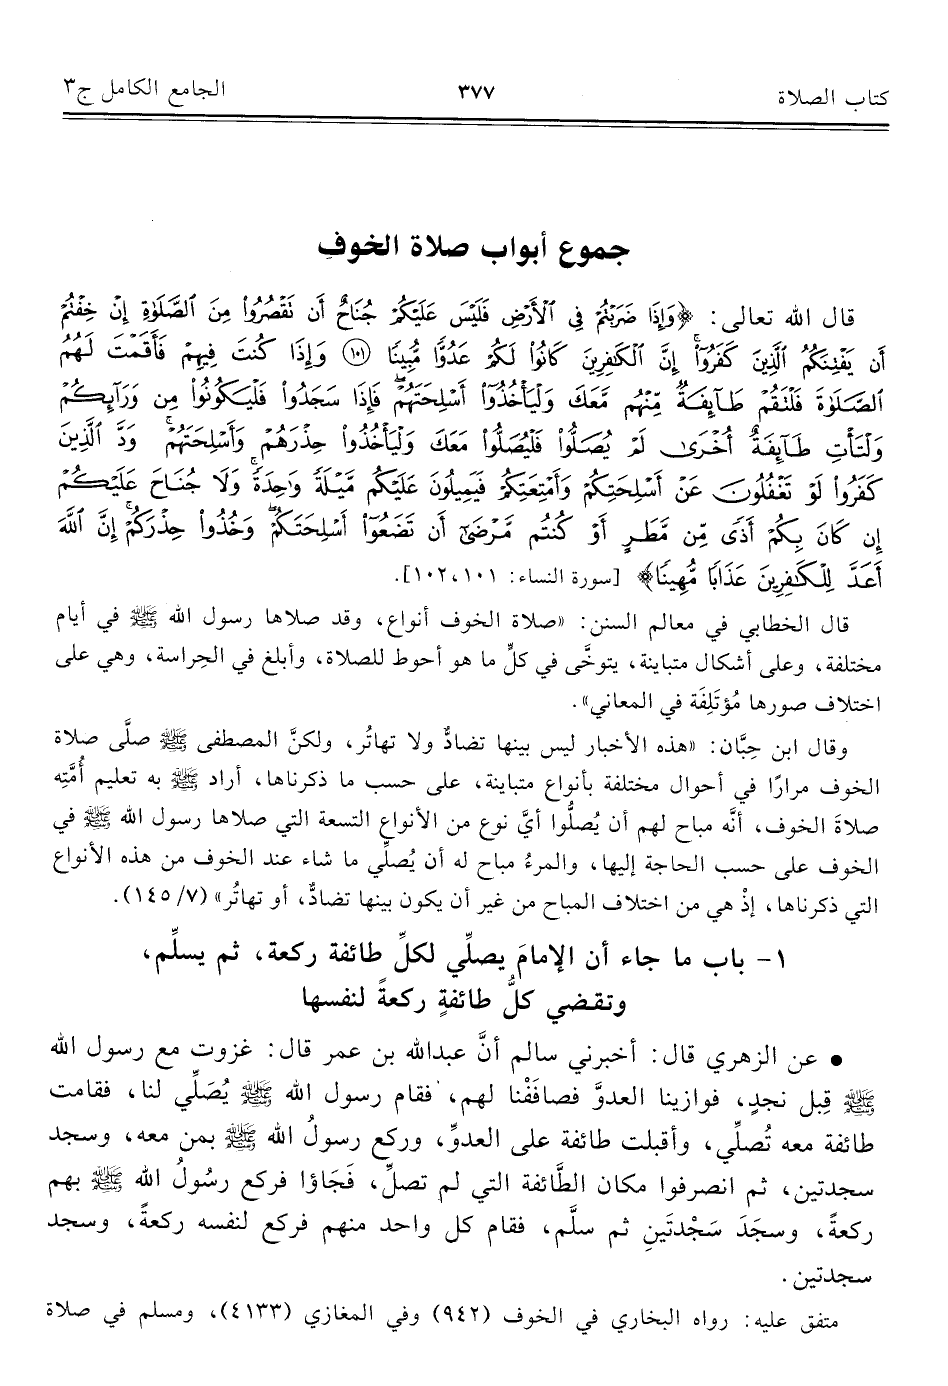 كتاب الصلاة ٣٧٧ الجامع الكامل ج٣
جموع أبواب صلاة الخوف
قال الله تعالى: ﴿وَإِذَا ضَرَبۡتُمۡ فِي ٱلۡأَرۡضِ فَلَيۡسَ عَلَيۡكُمۡ جُنَاحٌ أَن تَقۡصُرُواْ مِنَ ٱلصَّلَوٰةِ إِنۡ خِفۡتُمۡ
أَن يَفۡتِنَكُمُ ٱلَّذِينَ كَفَرُوٓاْۚ إِنَّ ٱلۡكَٰفِرِينَ كَانُواْ لَكُمۡ عَدُوّٗا مُّبِينٗا ۝١٠١ وَإِذَا كُنتَ فِيهِمۡ فَأَقَمۡتَ لَهُمُ
ٱلصَّلَوٰةَ فَلۡتَقُمۡ طَآئِفَةٞ مِّنۡهُم مَّعَكَ وَلۡيَأۡخُذُوٓاْ أَسۡلِحَتَهُمۡۖ فَإِذَا سَجَدُواْ فَلۡيَكُونُواْ مِن وَرَآئِكُمۡ
وَلۡتَأۡتِ طَآئِفَةٌ أُخۡرَىٰ لَمۡ يُصَلُّواْ فَلۡيُصَلُّواْ مَعَكَ وَلۡيَأۡخُذُواْ حِذۡرَهُمۡ وَأَسۡلِحَتَهُمۡۗ وَدَّ ٱلَّذِينَ
كَفَرُواْ لَوۡ تَغۡفُلُونَ عَنۡ أَسۡلِحَتِكُمۡ وَأَمۡتِعَتِكُمۡ فَيَمِيلُونَ عَلَيۡكُم مَّيۡلَةٗ وَٰحِدَةٗۚ وَلَا جُنَاحَ عَلَيۡكُمۡ
إِن كَانَ بِكُمۡ أَذٗى مِّن مَّطَرٍ أَوۡ كُنتُم مَّرۡضَىٰٓ أَن تَضَعُوٓاْ أَسۡلِحَتَكُمۡۖ وَخُذُواْ حِذۡرَكُمۡۗ إِنَّ ٱللَّهَ
أَعَدَّ لِلۡكَٰفِرِينَ عَذَابٗا مُّهِينٗا﴾ [سورة النساء: ١٠١، ١٠٢].
قال الخطابي في معالم السنن: «صلاة الخوف أنواع، وقد صلاها رسول الله ﷺ في أيام
مختلفة، وعلى أشكال متباينة، يتوخَّى في كلِّ ما هو أحوط للصلاة، وأبلغ في الحِراسة، وهي على
اختلاف صورها مُؤتَلِفَة في المعاني».
وقال ابن حِبَّان: «هذه الأخبار ليس بينها تضادٌّ ولا تهاتُر، ولكنَّ المصطفى ﷺ صلَّى صلاة
الخوف مرارًا في أحوال مختلفة بأنواع متباينة، على حسب ما ذكرناها، أراد ﷺ به تعليم أُمَّتِه
صلاةَ الخوف، أنَّه مباح لهم أن يُصلُّوا أيَّ نوع من الأنواع التسعة التي صلاها رسول الله ﷺ في
الخوف على حسب الحاجة إليها، والمرءُ مباح له أن يُصلِّي ما شاء عند الخوف من هذه الأنواع
التي ذكرناها، إذْ هي من اختلاف المباح من غير أن يكون بينها تضادٌّ، أو تهاتُر» (٧/ ١٤٥).
١- باب ما جاء أن الإمامَ يصلِّي لكلِّ طائفة ركعة، ثم يسلِّم،
وتقضي كلُّ طائفةٍ ركعةً لنفسها
• عن الزهري قال: أخبرني سالم أنَّ عبدالله بن عمر قال: غزوت مع رسول الله
ﷺ قِبل نجدٍ، فوازينا العدوَّ فصافَفْنا لهم، فقام رسول الله ﷺ يُصَلِّي لنا، فقامت
طائفة معه تُصلِّي، وأقبلت طائفة على العدوِّ، وركع رسولُ الله ﷺ بمن معه، وسجد
سجدتين، ثم انصرفوا مكان الطَّائفة التي لم تصلِّ، فَجَاؤا فركع رسُولُ الله ﷺ بهم
ركعةً، وسجَدَ سَجْدتَينِ ثم سلَّم، فقام كل واحد منهم فركع لنفسه ركعةً، وسجد
سجدتين.
متفق عليه: رواه البخاري في الخوف (٩٤٢) وفي المغازي (٤١٣٣)، ومسلم في صلاة